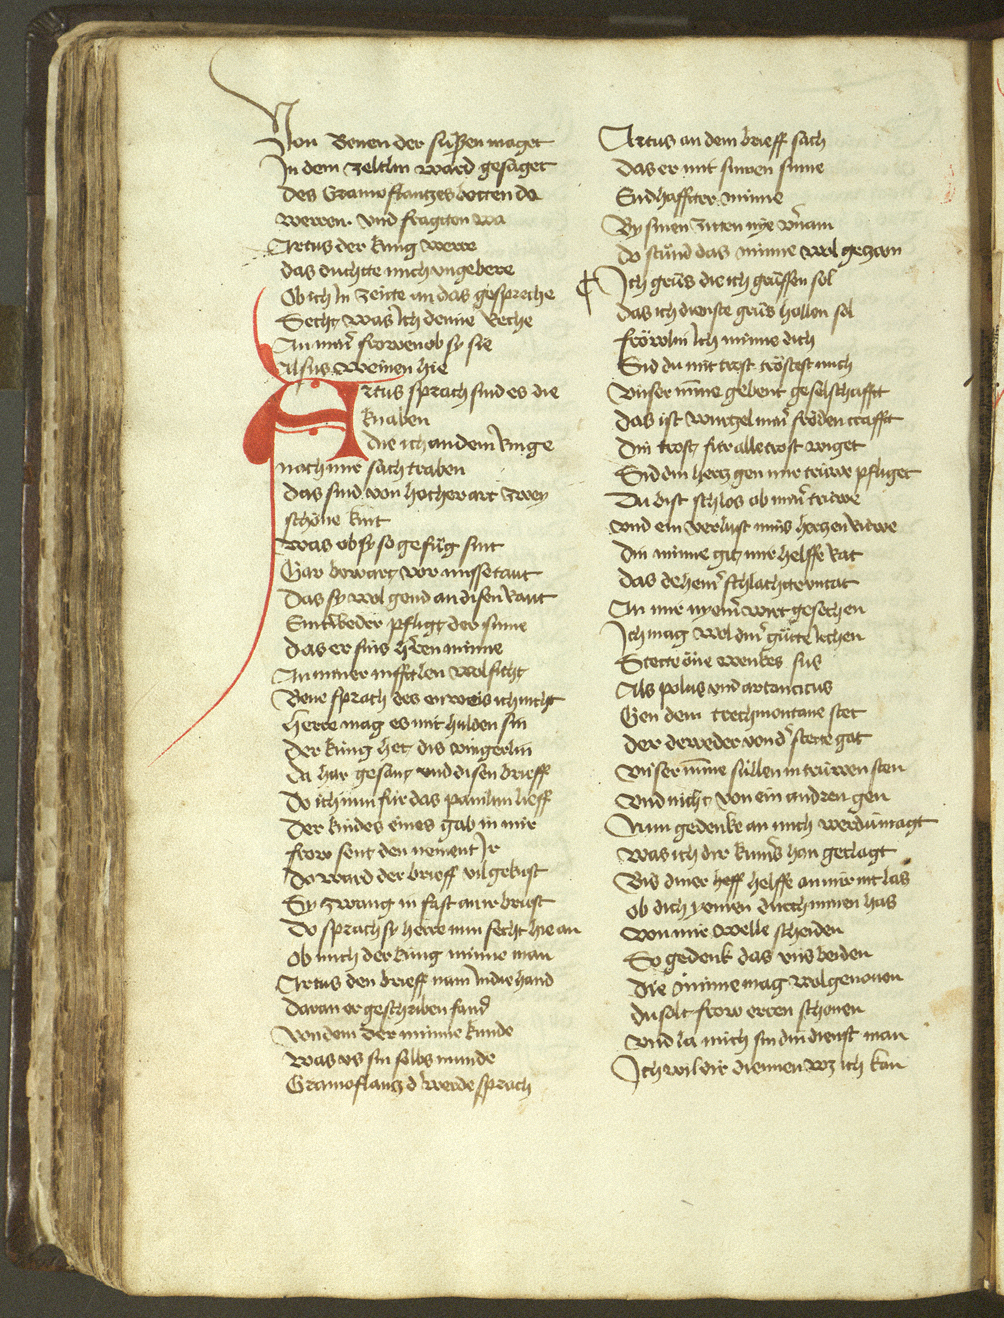 Von Benen der suͦssen maget
In dem zeltlin ward gesaget
des Gramoflantzes botten da
weren. vnd fragten wa
Artus der kung were
das duchtte mich vngebere
Ob ich in zeitte an das gespreche
Secht was ich denne reche
An miner frowen ob sy sie
Alsus weinen hie
Artus sprach sind es die
knaben
die ich an dem ringe
nach mir sach traben
das sind von hocher art zwey
schoͤne kint
was ob sy so gefuͤg sint
Gar bewart vor missetautt
Das sy wol gond an disen raut
Eintweder pfligt der sinne
das er sins heren minne
An miner nifftlen wol sicht
Bene sprach des enweis ich nicht
herre mag es mit hulden sin
Der kung het dis vingerlin
da har gesant vnd disen brieff
Do ich nun fuͤr das paulun lieff
Der kindes eines gab in mir
frow sent den nement ir
Do ward der brieff vil gekust
Sy zwang in fast an ir brust
Do sprach sy herre nun secht hie an
ob mich der kung minne man
Artus den brieff nam in die hand
daran er geschriben fand
Von dem der minne kunde
was vs sin selbs munde
Gramoflantz d werde sprach
Artus an dem brieff sach
das er mit sinnen sinne
Endhaffter minne
By sinen zitten nye vernam
do stuͦnd das minne wol gezam
Ich gruͤs die ich gruͤssen sol
das ich dienste gruͤs hollen sol
froͤwlin ich minne dich
Sid du mit trost troͤstest mich
Vnser minne gebent geselschafft
das ist wurtzel miner froͤden crafft
Din trost fuͤr alle trost wiget
Sid din hertz gen mir truwe pfliget
Du bist schlos ob miner truwe
vnd ein verlust mins hertzen ruwe
Din minne git mir helffe rat
das dehein schlachtte vntat
An mir nyemer wirt gesechen
Ich mag wol diner guͤtte iechen
Stette one wenkes sus
Als polus vnd artanticus
Gen dem trechmontane stet
der deweder von der stette gat
Vnser minne sullen in truwen sten
vnd nicht von ein andren gen
Nun gedenke an mich werdu magt
was ich dir kumers han geclagt
Bis diner heff helffe an mir nit las
ob dich yemen durch minen has
von mir welle scheiden
So gedenk das vns beiden
die minne mag wol gelonen
du solt frow erren schonen
vnd la mich sin din dienst man
Ich wil dir diennen wz ich kan